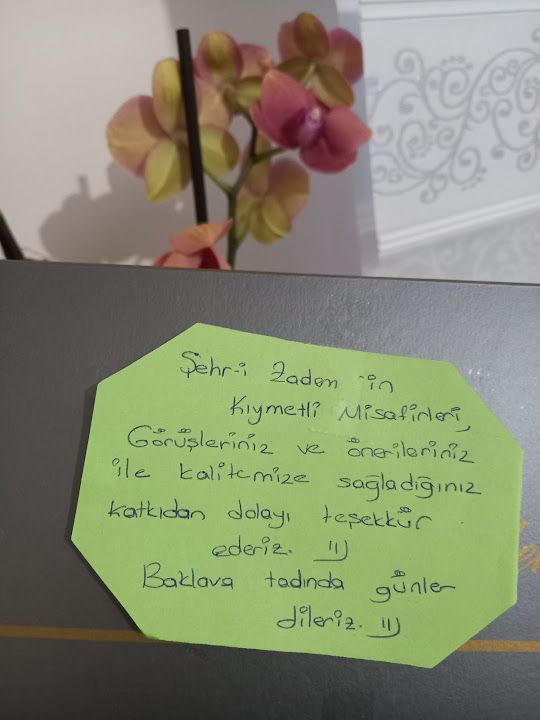 Şehr-i Zadem'in
Kıymetli Misafirleri,
Görüşleriniz ve önerileriniz
ile kalitemize sağladığınız
katkıdan dolayı teşekkür
ederiz. =))
Baklava tadında günler
dileriz. =))